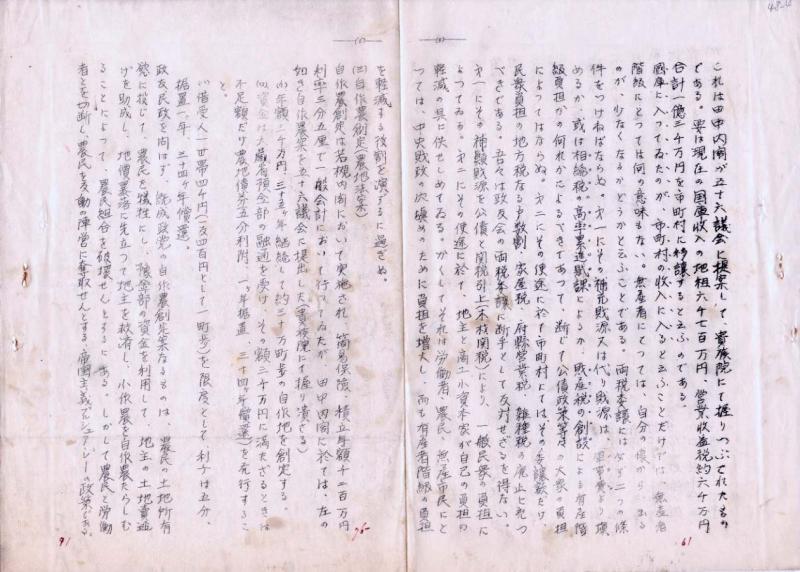 これは田中内閣が五十六議会に提案して、貴族院にて握りつぶされたもの
である。要は現在の国庫収入の地租六千七百万円、営業収益税約六千万円
合計一億三千万円を市町村に移譲すると云ふのである。
国庫に入ってゐたのが、市町村の収入に入ると云ふことだけでは、無産者
階級にとっては何の意味もない。無産者にとっては、自分の懐から出る
のが、少なくなるかどうかと云ふことである。両税委譲には必ず二つの條
件をつけねばならぬ。第一にその補充財源又は代り財源は、軍事費より填
めるか、或は相続税の高率累進賦課によるか、財産税の創設による有産階
級負担かの何れかによるべきであって、断じて公債政策等の大衆の負担
によってはならぬ。第二にその使途に於て市町村にては、その委譲額だけ
民衆負担の地方税なる戸数割、家屋税、府県営業税、雑種税の廃止に充つ
べきである。吾々は政友会の両税委譲に断乎として反対せざるを得ない。
第一にその補填財源を公債と関税引上(木材関税)により、一般民衆の負担に
よってゐる。第二にその使途に於て、地主と商工小資本家が自己の負担の
軽減の具に供せしめてゐる。かくしてそれは労働者、農民、無産市民にと
っては、中央財政の穴填めのために負担を増大し、而も有産者階級の負担
を軽減する役割を演ずるに過ぎぬ。
(三)自作農創定(農地法案)
自作農創定は若槻内閣において実施され、簡易保険、積立年額千二百万円
利率三分五厘で一般会計において行ってゐたが、田中内閣に於ては、左の
如き自作農案を五十六議会に提出した(貴族院にて握り潰さる)
(イ)年額二千万円、三十五ヶ年継続して約三十万町歩の自作地を創定する。
(ロ)資金は大蔵省預金部の融通を受け、その額二千万円に満たざるときは
不足額だけ農地債券五分利附、一ヶ年据置、三十四ヶ年償還)を発行するこ
と、
(ハ)借受人一世帯四千円(一反四百円として一町歩)を限度として、利子は五分、
据置一年、三十四ヶ年償還。
政友民政を問はず、既成政党の自作農創定案なるものは、農民の土地所有
慾に投じて、農民を犠牲にし、預金部の資金を利用して、地主の土地賣逃
げを助成し、地価暴落に先立って地主を救済し、小作農を自作農たらしむ
ることによって、農民組合を破壊せんとするにある。しかして農民と労働
者とを切断し、農民を反動の陣営に奪取せんとする、帝国主義ブルジョアジーの政策である
61
76
91